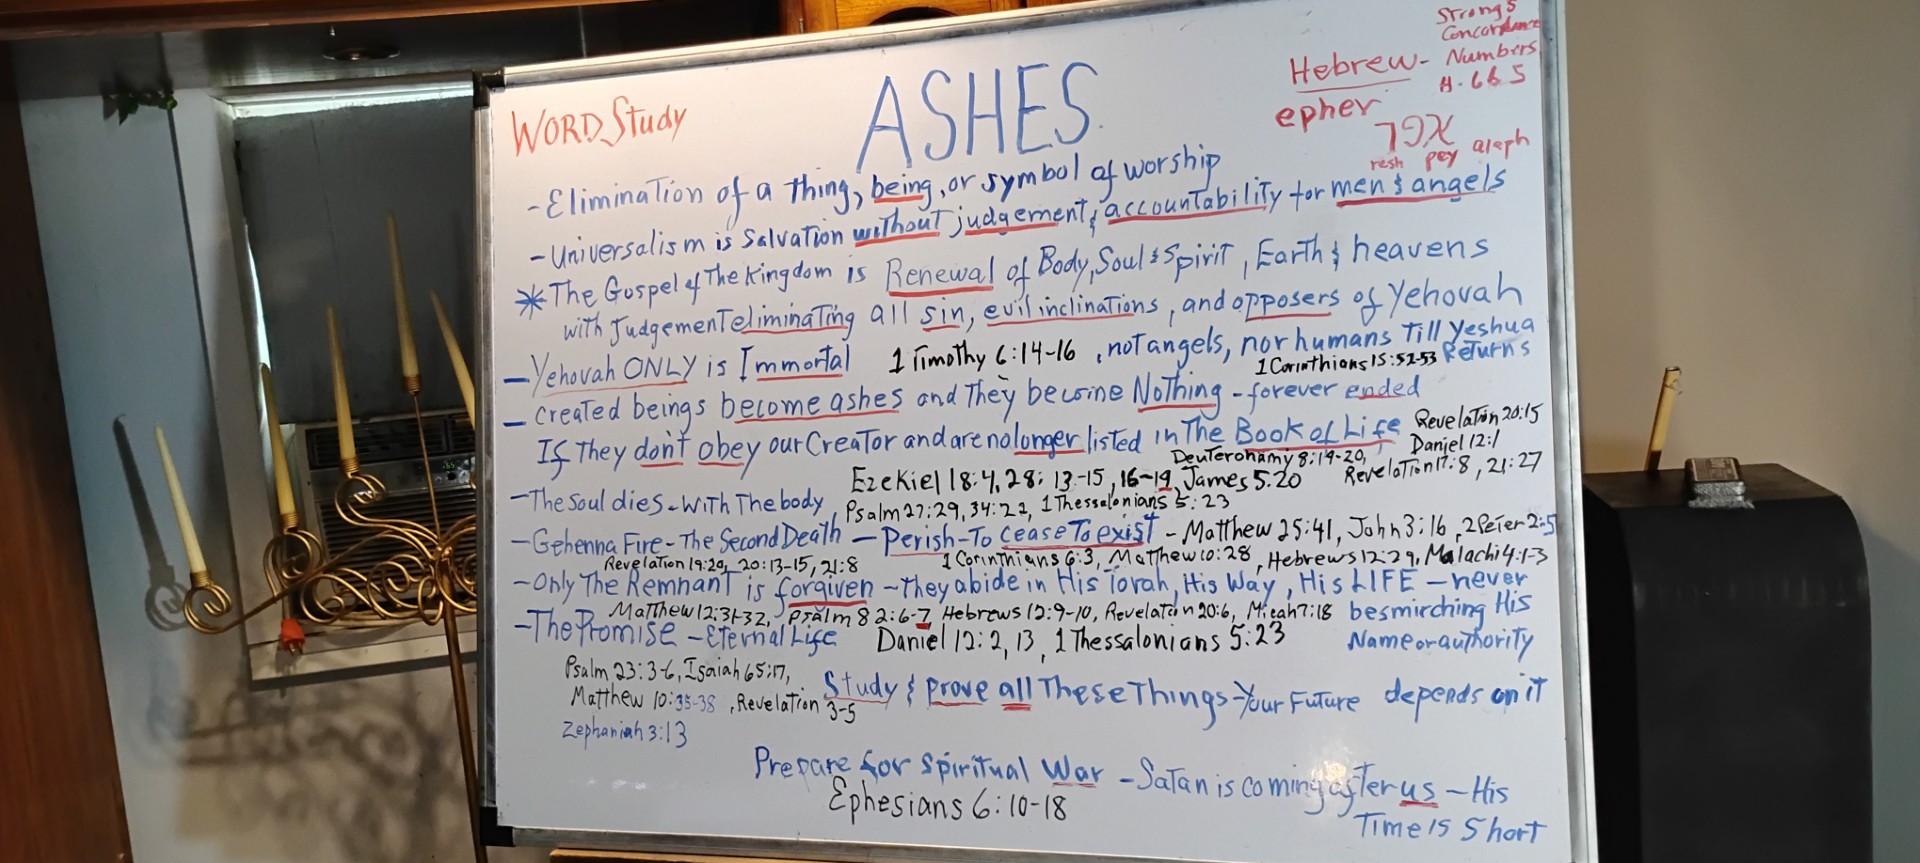 WORD Study
ASHES
Strong's
Concordance
Hebrew - Numbers
H-665
epher
אפר
resh pey aleph
- Elimination of a thing, being, or symbol of worship
- Universalism is Salvation without judgement & accountability for men & angels
* The Gospel of The Kingdom is Renewal of Body, Soul & Spirit, Earth & heavens
with Judgement eliminating all sin, evil inclinations, and opposers of Yehovah
- Yehovah ONLY is Immortal 1 Timothy 6:14-16, not angels, nor humans Till Yeshua
1 Corinthians 15:52-53 Returns
- created beings become ashes and They become Nothing - forever ended
If They don't obey our Creator and are no longer listed in The Book of Life Revelation 20:15
Deuteronomy 8:19-20, Daniel 12:1
Ezekiel 18:4, 28:13-15, 16-19, James 5:20 Revelation 17:8, 21:27
- The soul dies - with The body, Psalm 27:29, 34:22, 1 Thessalonians 5:23
- Gehenna Fire - The Second Death - Perish - To cease To exist - Matthew 25:41, John 3:16, 2 Peter 2:5
Revelation 19:20, 20:13-15, 21:8 1 Corinthians 6:3, Matthew 10:28, Hebrews 12:29, Malachi 4:1-3
- Only The Remnant is forgiven - They abide in His Torah, His Way, His LIFE - never
Matthew 12:31-32, Psalm 82:6-7, Hebrews 12:9-10, Revelation 20:6, Micah 7:18 besmirching His
- The Promise - Eternal Life Daniel 12:2, 13, 1 Thessalonians 5:23 Name or authority
Psalm 23:3-6, Isaiah 65:17,
Study & prove all These Things - Your Future depends on it
Matthew 10:35-38, Revelation 3-5
Zephaniah 3:13
Prepare for Spiritual War - Satan is coming after us - His
Ephesians 6:10-18 Time is Short